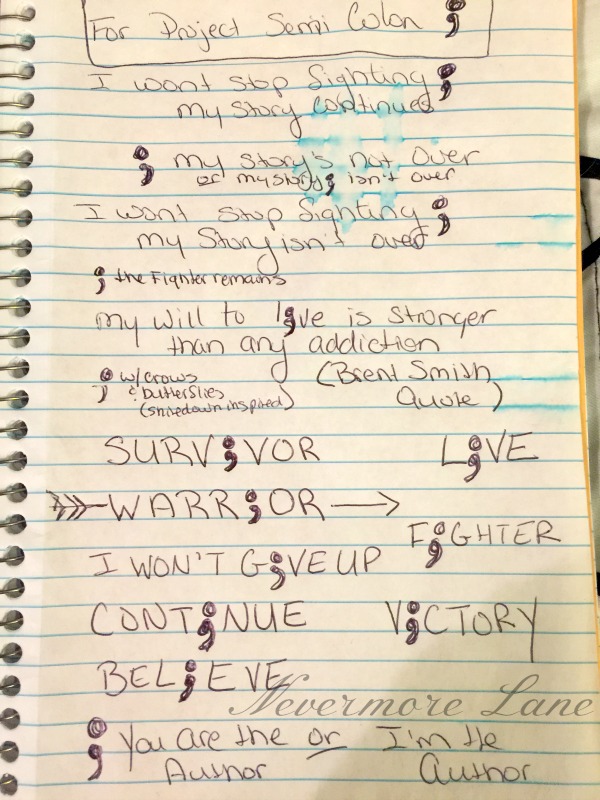 For Project Semi Colon ;
I wont stop fighting ;
my story continues
; my story's not over
or my story; isn't over
I wont stop fighting ;
my story isn't over
; the Fighter remains
my will to l;ve is stronger
than any addiction
; w/ crows (Brent Smith
& butterflies Quote)
(shinedown inspired)
SURV;VOR L;VE
WARR;OR
F;GHTER
I WON'T G;VE UP
CONT;NUE V;CTORY
BEL;EVE
Nevermore Lane
; You are the or I'm the
Author Author